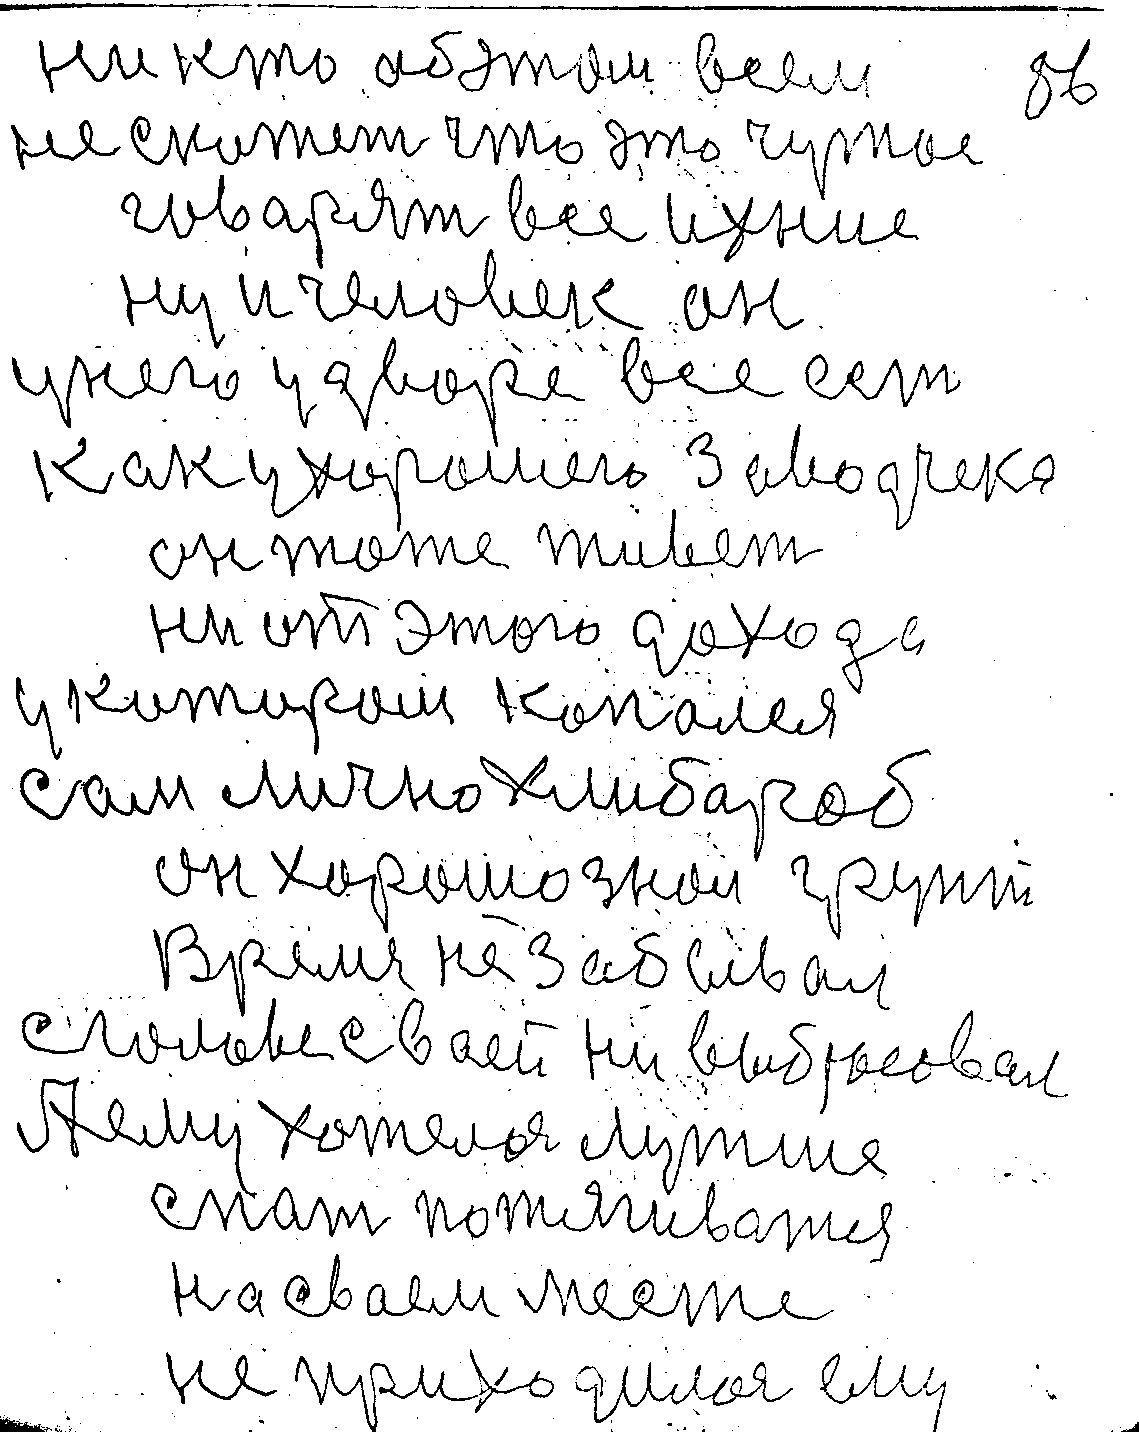 никто обэтом всем 86
нескотет что это чутое
говарят все ихние
ну и человек он
унего удворе все сет
каку хорошего Заводчека
он тоте тивет
ни от этого дохода
укотиром копался
сам лично хлибароб
он хорошо знал грунт
Время не Забывал
сголове сваей ни выбрасовал
Аему хотелся лутше
спат потягиватся
насваем месте
не приходился ему